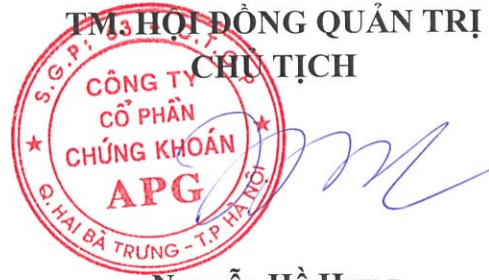 TM. HỘI ĐỒNG QUẢN TRỊ
CHỦ TỊCH
CÔNG TY
CỔ PHẦN
CHỨNG KHOÁN
APG
Q. HAI BÀ TRƯNG - T.P HÀ NỘI